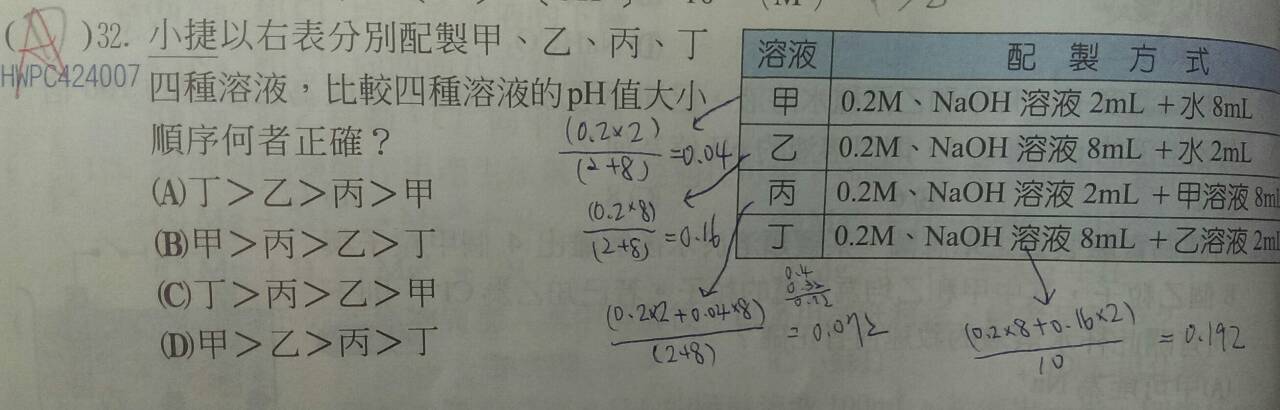 (A)32. 小捷以右表分別配製甲、乙、丙、丁
HWPC424007
四種溶液,比較四種溶液的pH值大小
順序何者正確?
(A)丁>乙>丙>甲
(B)甲>丙>乙>丁
(C)丁>丙>乙>甲
(D)甲>乙>丙>丁
溶液 配製方式
甲 0.2M、NaOH 溶液 2mL +水 8mL
乙 0.2M、NaOH 溶液 8mL +水 2mL
丙 0.2M、NaOH 溶液 2mL +甲溶液 8ml
丁 0.2M、NaOH 溶液 8mL +乙溶液 2ml
(0.2×2)
(2+8)
=0.04
(0.2×8)
(2+8)
=0.16
0.4
0.32
0.72
(0.2×2+0.04×8)
(2+8)
=0.072
(0.2×8+0.16×2)
10
=0.192